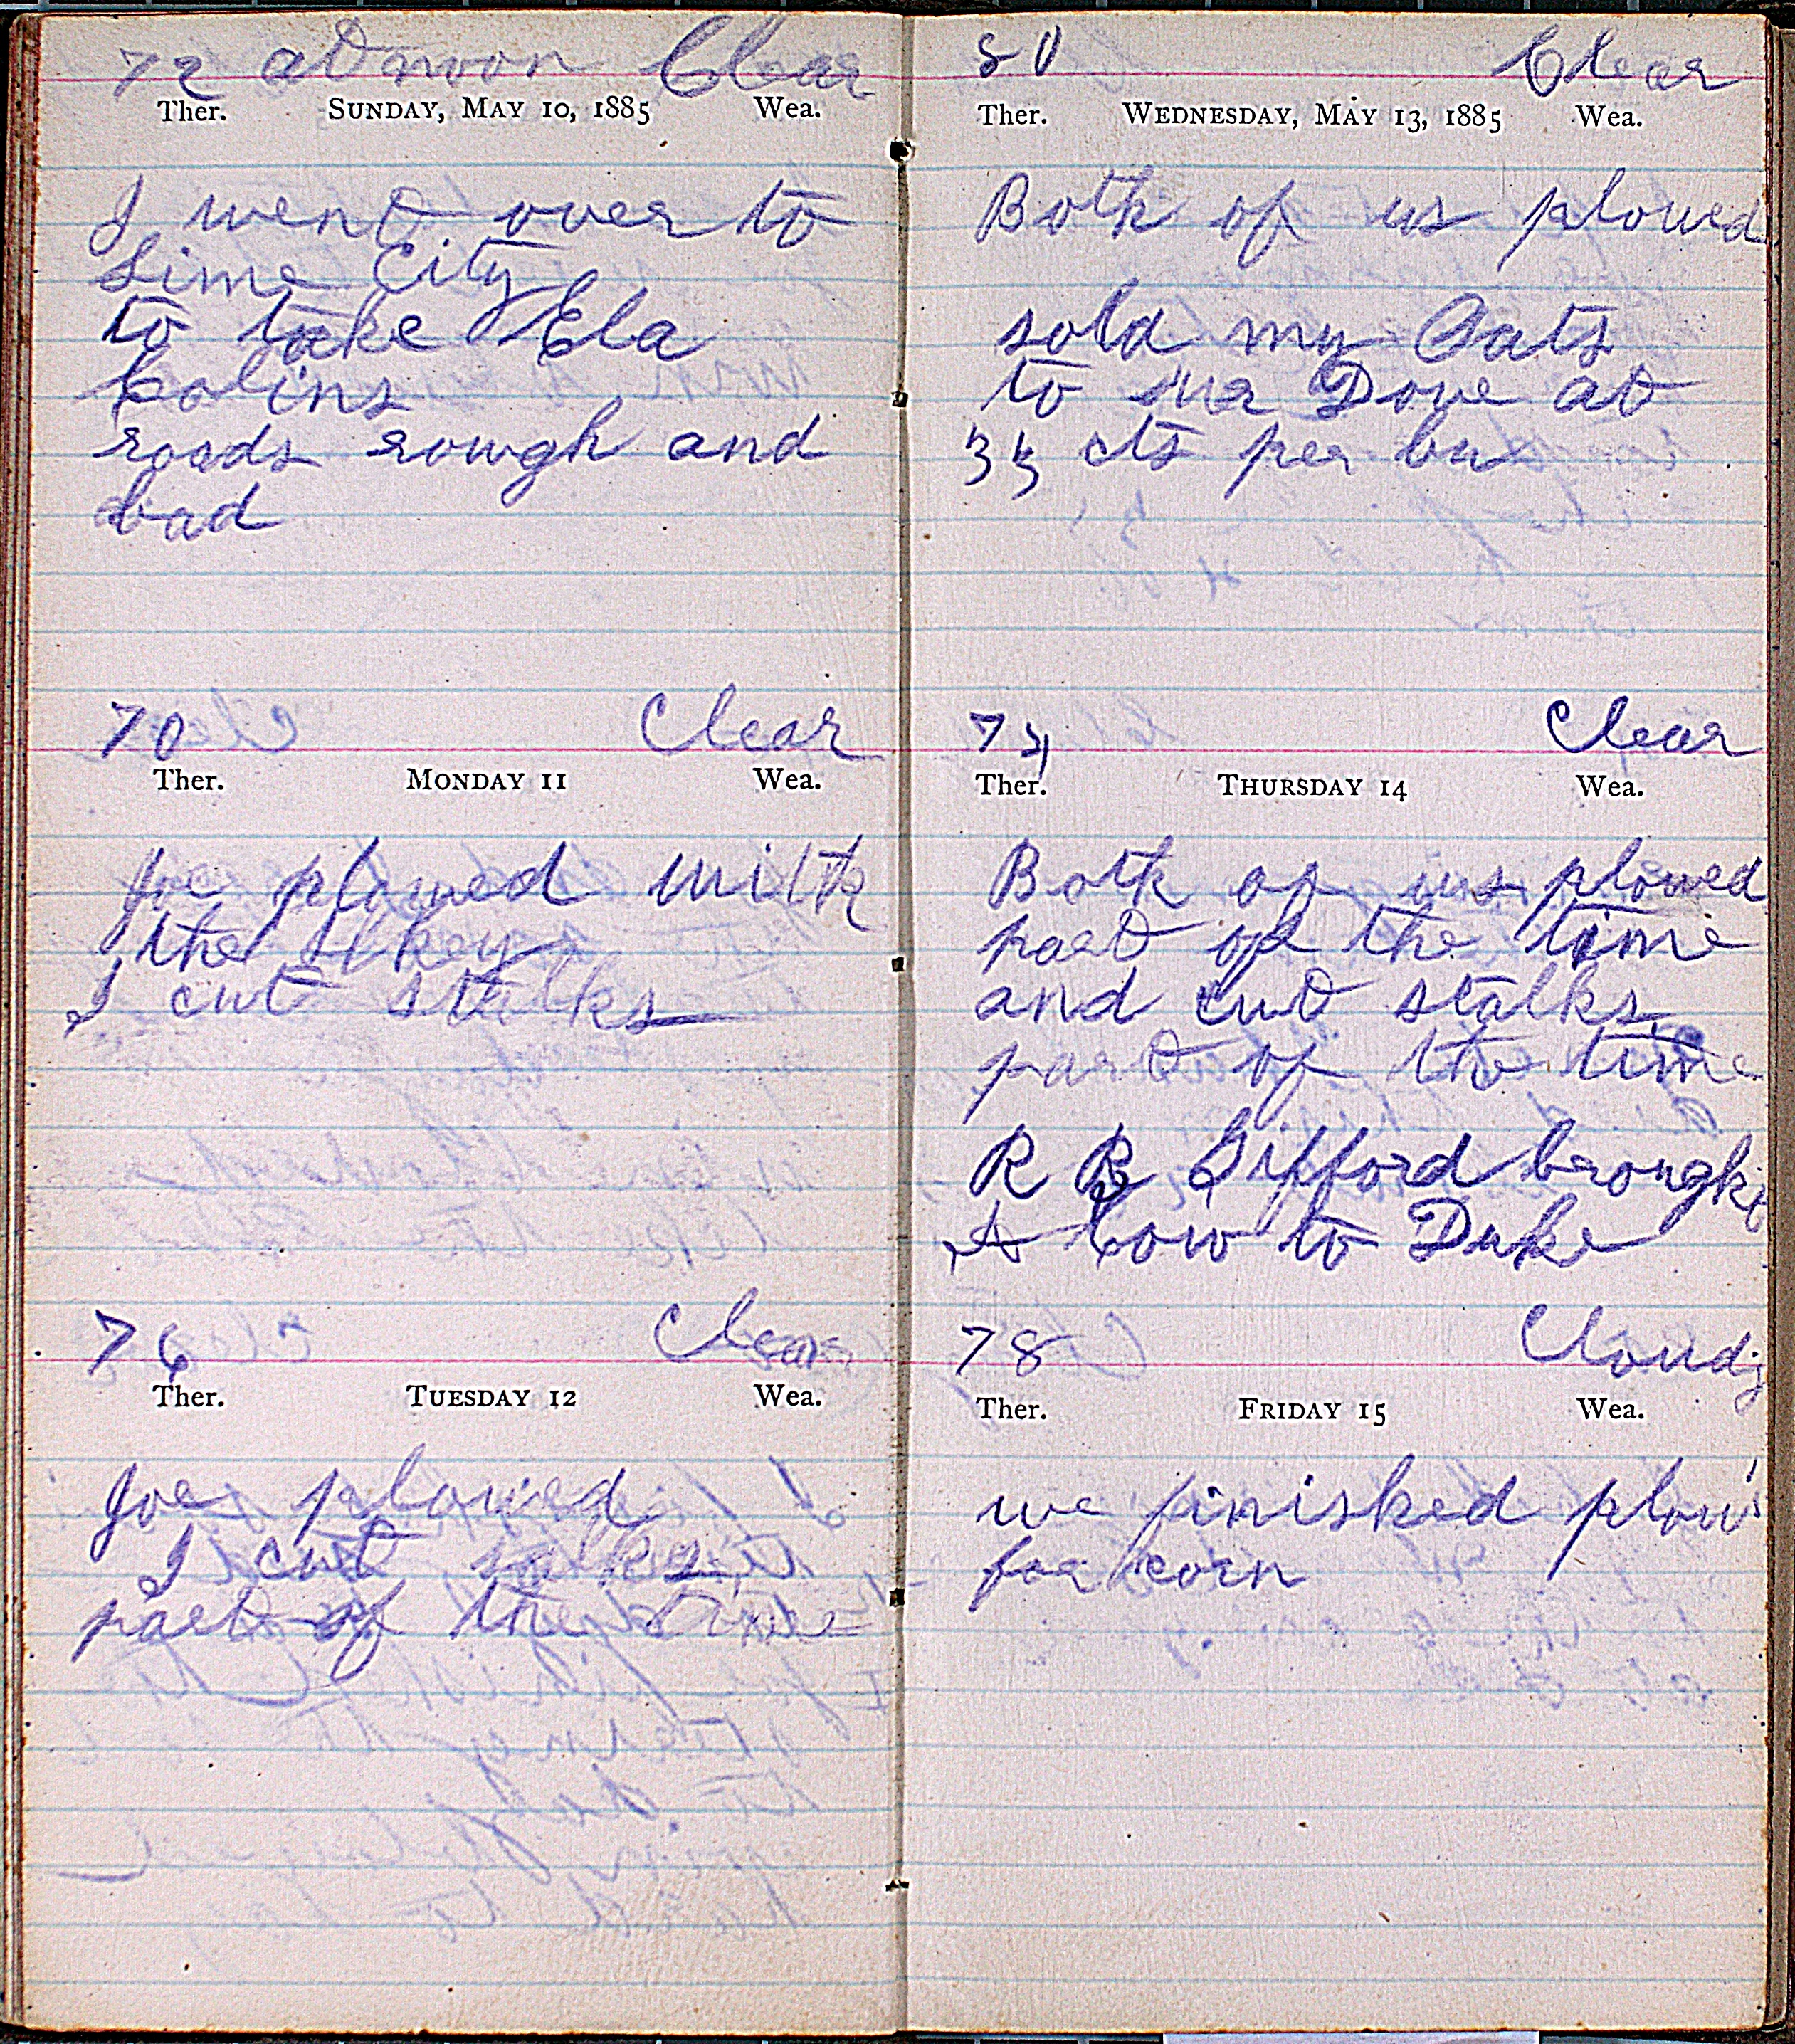 72 at noon Clear
Ther. SUNDAY, MAY 10, 1885 Wea.
I went over to
Lime City
to take Ela
Colins
roads rough and
bad
70 Clear
Ther. MONDAY 11 Wea.
Joe plowed with
the
I cut stalks
76 Clear
Ther. TUESDAY 12 Wea.
Joe plowed
I cut salks
part of the time
80 Clear
Ther. WEDNESDAY, MAY 13, 1885 Wea.
Both of us plowed
sold my Oats
to Mr Dove at
33 cts per bu
74 Clear
Ther. THURSDAY 14 Wea.
Both of us plowed
part of the time
and cut stalks
part of the time
R R Gifford brought
A Cow to Duke
78 Cloudy
Ther. FRIDAY 15 Wea.
we finished plow
for corn